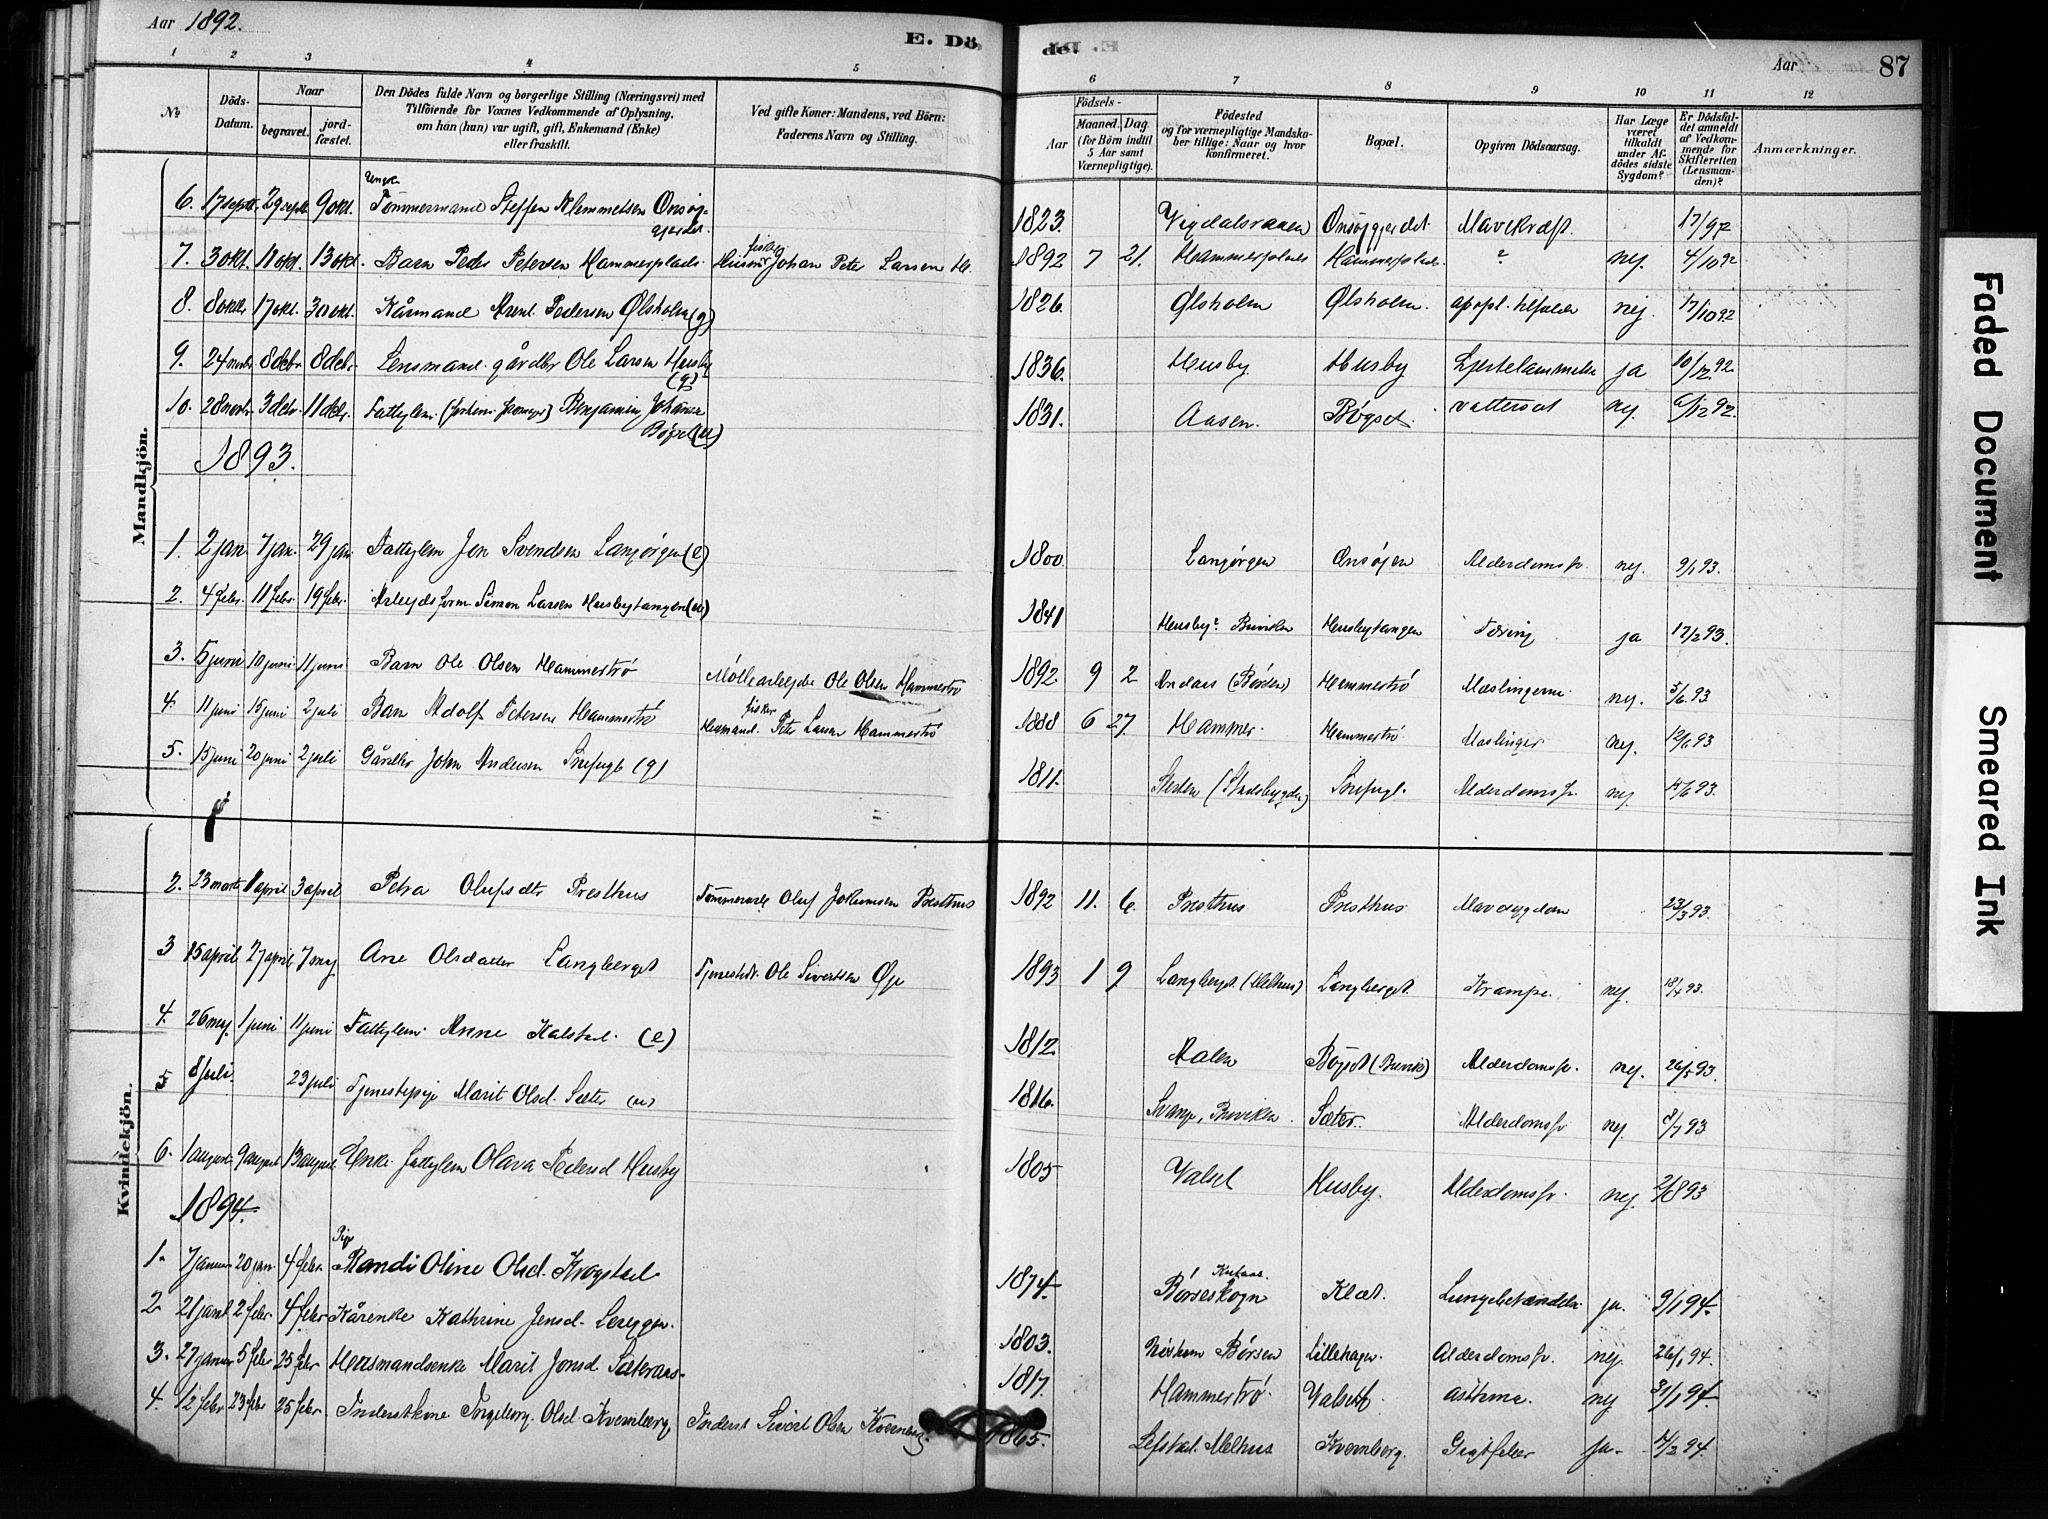 Aar 1892.
E. Dö
de.
Aar
87
1 2 3 4 5 6 7 8 9 10 11 12
No
Döds-Datum.
Naar
begravet.
jord-fæstet.
Den Dödes fulde Navn og borgerlige Stilling (Næringsvei) med
Tilföiende for Voxnes Vedkommende af Oplysning,
om han (hun) var ugift, gift, Enkemand (Enke)
eller fraskilt.
Ved gifte Koner: Mandens, ved Börn:
Faderens Navn og Stilling.
Födsels-
Aar
Maaned.
Dag
(for Börn indtil
5 Aar samt
Værnepligtige).
Födested
og for værnepligtige Mandska-
ber tillige: Naar og hvor
konfirmeret.
Bopæl.
Opgiven Dödsaarsag.
Har Læge
været
tilkaldt
under Af-
dödes sidste
Sygdom?
Er Dödsfal-
det anmeldt
af Vedkom-
mende for
Skifteretten
(Lensman-
den)?
Anmærkninger.
Mandkjön.
6. 17 septb. 29 septb 9 okt. Ungk. Tømmermand Steffen Klemmetsen Onsøg-gjerdet 1823. Onsøggjerdet Mavekræft. 17/9 92
7. 3 okt. 11 okt. 13 okt. Barn Peder Petersen Hammerplads. Husm fisker Johan Peter Larsen H. 1892 7 21. Hammerplads Hammerplads ? nej. 4/10 92
8. 8 oktbr 17 okt. 30 okt. Kårmand Arnt Pedersen Ølsholm (g) 1826. Ølsholm Ølsholm. apopl. tilfælde nej. 17/10 92
9. 24 novbr 8 debr 8 debr. Lensmand gårdbr Ole Larsen Husby (g) 1836. Husby. Husby Hjertelammelse ja 10/12 92.
10. 28 novbr 3 debr 11 debr. Fattiglem Benjamin Johansen Bøgset (u) 1831. Aasen. Bøgset. vattersot nej. 6/12 92.
1893.
1. 2 jan. 7 jan. 29 jan Fattiglem Jon Svendsen Langørgen (e) 1800 Langørgen Onsøjen Alderdomssv. nej. 9/1 93.
2. 4 febr. 11 febr 19 febr. Arbejdsform. Simon Larsen Husbytangen (u) 1841 Husby? Buviken Husbytangen Tæring ja 17/2 93.
3. 5 juni 10 juni 11 juni Barn Ole Olsen Hammertrø Møllearbejder Ole Olsen Hammertrø 1892. 9 2 (Børsen) Hammertrø Mæslingerne. nej. 5/6 93
4. 11 juni 15 juni 2 juli Barn Adolf Petersen Hammertrø Husmand fisker Peter Larsen Hammertrø 1888 6 27. Hammer. Hammertrø Mæslinger nej. 12/6 93
5. 15 juni 20 juni 2 juli Gårdbr John Andersen Snefugl (g) 1811. (Stadsbygden) Snefugl. Alderdomssv. nej. 15/6 93.
Kvindekjön.
2. 23 marts 1 april 3 april Petra Olufsdtr Presthus Tømmermd Oluf Johannsen Presthus 1892 11. 6. Presthus Presthus Mavesygdom 23/3 93.
3 15 april 27 april 7 maj Ane Olsdatter Langberget Tjenestedr. Ole Sivertsen Øye 1893 1 9 Langberget (Melhus) Langberget Krampe. nej. 18/4 93.
4. 26 maj. 1 juni 11 juni Fattiglem Anne Kalstad. (e) 1812. Aalen Bögset (Buvik) Alderdomssv. nej. 26/5 93.
5 8 juli. 23 juli Tjenestepige Marit Olsd. Sæter (u) 1816. Buviken Sæter. Alderdomssv nej. 8/7 93
6. 1 august 9 august 13 august Enke fattiglem Olava Pedersd Husby 1805 Valset Husby. Alderdomssv. nej. 2/8 93
1894.
1. 7 januar 20 jan. 4 febr. Pige Randi Oline Olsd. Krogstad 1874. Børseskogn Klæt. Lungebetændelse ja. 9/1 94.
2. 21 jan 2 febr 4 febr Kårenke Kathrine Jensd. Lereggen. 1803. Børsen Lillehagen. Alderdomssv. nej. 26/1 94.
3. 27 januar 5 febr 25 febr Husmandsenke Marit Jonsd Sæteraas. 1817. Hammertrø. Valset asthma. nej 31/1 94.
4. 12 febr 23 febr 25 febr. Inderstkone Ingeborg Olsd Kvernberg, Inderst Sivert Olsen Kvernberg. 1865. Lefstad Melhus Kvernberg. Gigtfeber ja. 94.
Faded Document
Smeared Ink